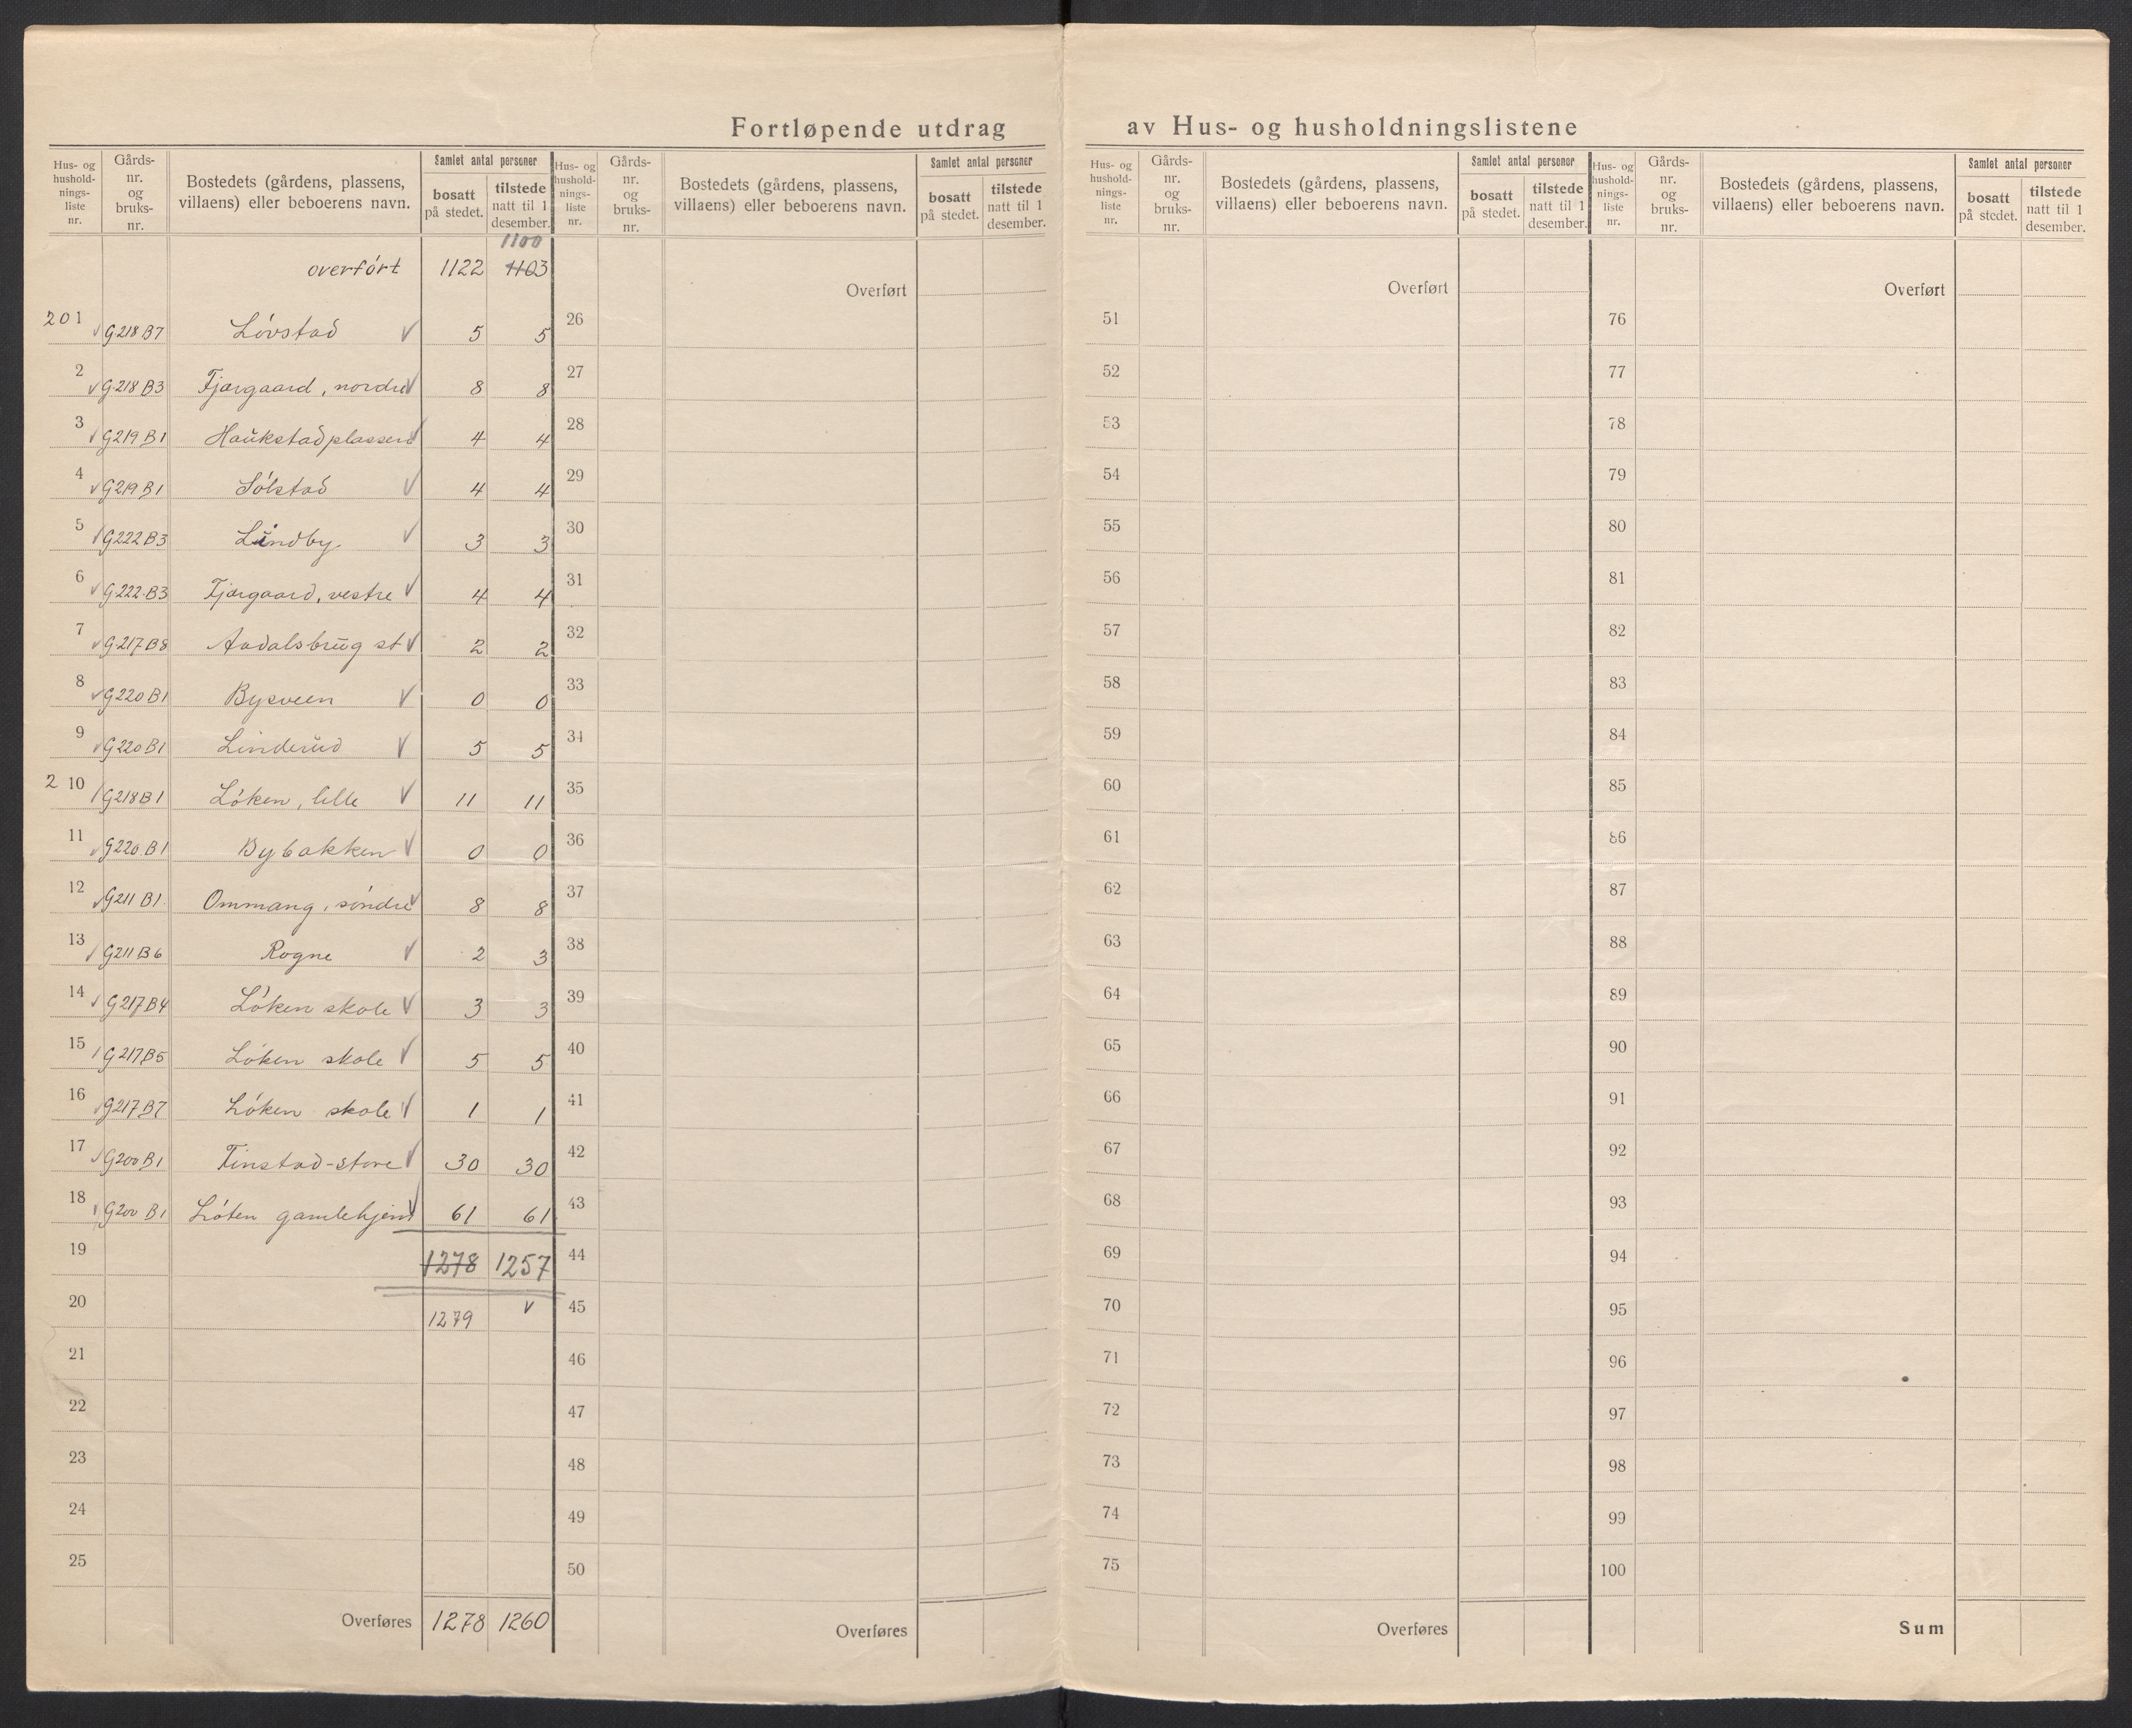 Fortløpende utdrag av Hus- og husholdningslistene
Hus- og husholdningsliste nr. | Gårds-nr. og bruks-nr. | Bostedets (gårdens, plassens, villaens) eller beboerens navn. | Samlet antal personer | bosatt på stedet. | tilstede natt til 1 desember.
1100
overført 1122 1103
201 G218 B7 Lövstad 5 5
2 G218 B3 Fjærgaard, nordre 8 8
3 G219 B1 Haukstadplassen 4 4
4 G219 B1 Sölstad 4 4
5 G222 B3 Lindby 3 3
6 G222 B3 Fjærgaard, vestre 4 4
7 G217 B8 Aadalsbrug st 2 2
8 G220 B1 Bysveen 0 0
9 G220 B1 Linderud 5 5
210 G218 B1 Löken, lille 11 11
11 G220 B1 Bybakken 0 0
12 G211 B1 Ommang, söndre 8 8
13 G211 B6 Rogne 2 3
14 G217 B4 Löken skole 3 3
15 G217 B5 Löken skole 5 5
16 G217 B7 Löken skole 1 1
17 G200 B1 Finstad-store 30 30
18 G200 B1 Löten gamlehjem 61 61
19 1278 1257
20 1279
21
22
23
24
25
Overføres 1278 1260
Hus- og husholdningsliste nr. | Gårds-nr. og bruks-nr. | Bostedets (gårdens, plassens, villaens) eller beboerens navn. | Samlet antal personer | bosatt på stedet. | tilstede natt til 1 desember.
Overført
26
27
28
29
30
31
32
33
34
35
36
37
38
39
40
41
42
43
44
45
46
47
48
49
50
Overføres
Hus- og husholdningsliste nr. | Gårds-nr. og bruks-nr. | Bostedets (gårdens, plassens, villaens) eller beboerens navn. | Samlet antal personer | bosatt på stedet. | tilstede natt til 1 desember.
Overført
51
52
53
54
55
56
57
58
59
60
61
62
63
64
65
66
67
68
69
70
71
72
73
74
75
Overføres
Hus- og husholdningsliste nr. | Gårds-nr. og bruks-nr. | Bostedets (gårdens, plassens, villaens) eller beboerens navn. | Samlet antal personer | bosatt på stedet. | tilstede natt til 1 desember.
Overført
76
77
78
79
80
81
82
83
84
85
86
87
88
89
90
91
92
93
94
95
96
97
98
99
100
Sum